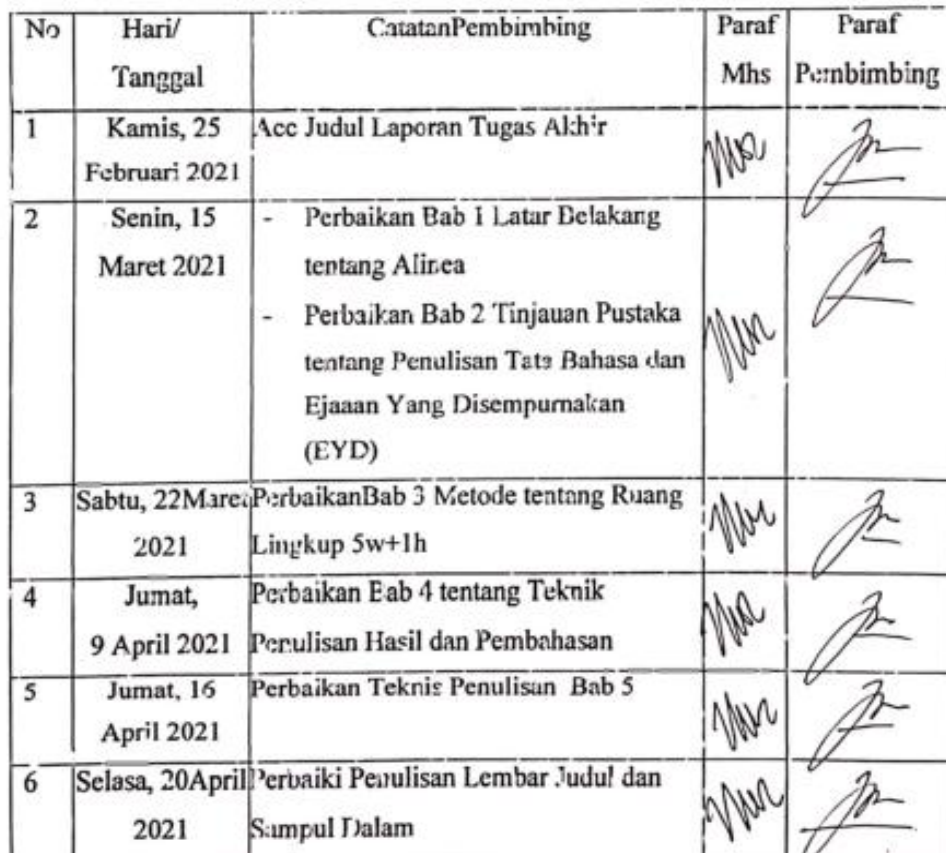 No Hari/ Tanggal CatatanPembimbing Paraf Mhs Paraf Pembimbing
1 Kamis, 25 Februari 2021 Acc Judul Laporan Tugas Akhir
2 Senin, 15 Maret 2021 - Perbaikan Bab 1 Latar Belakang
tentang Alinea
- Perbaikan Bab 2 Tinjauan Pustaka
tentang Penulisan Tata Bahasa dan
Ejaaan Yang Disempurnakan
(EYD)
3 Sabtu, 22Maret 2021 PerbaikanBab 3 Metode tentang Ruang
Lingkup 5w+1h
4 Jumat, 9 April 2021 Perbaikan Bab 4 tentang Teknik
Penulisan Hasil dan Pembahasan
5 Jumat, 16 April 2021 Perbaikan Teknis Penulisan Bab 5
6 Selasa, 20April 2021 Perbaiki Penulisan Lembar Judul dan
Sampul Dalam